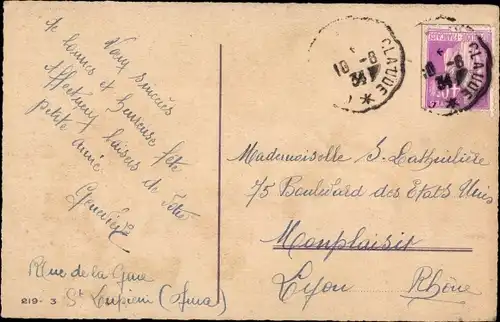 Vœux sincères
de bonne et heureuse fête
Affectueux baisers de votre
petite amie
Geneviève
R. Rue de la Gare
St Lupicin (Jura)
219-3
CLAUDE
10-6
34
40c
Mademoiselle S. Lathuilière
75 Boulevard des Etats Unis
Monplaisir
Lyon Rhône